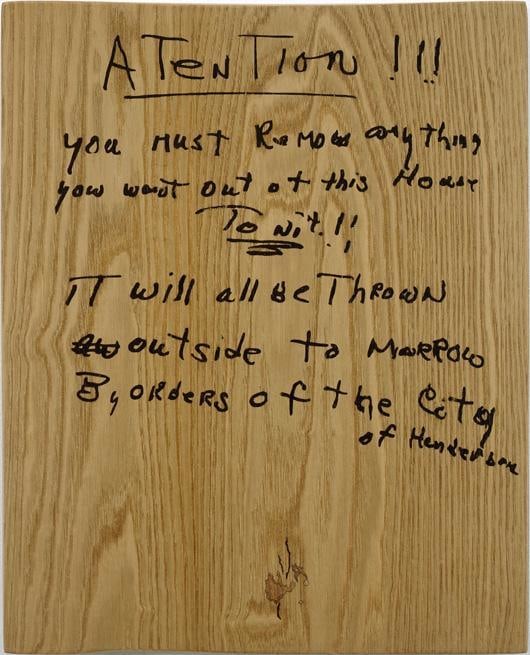 ATenTion !!!
you must Remove anything
you want out of this House
To nit.!!
IT will all Be Thrown
outside to MoRRow
By oRdeRs of the City
of Henderson